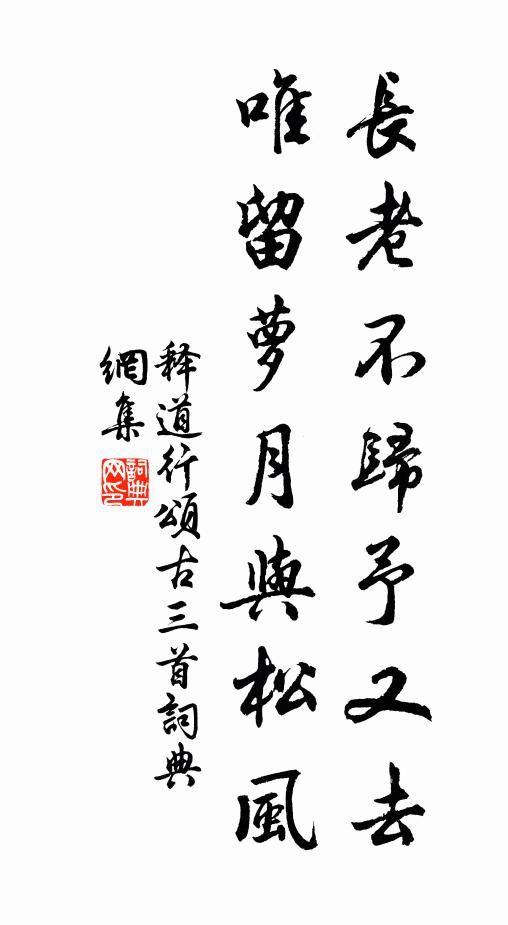 長老不歸予又去
唯留夢月與松風
释道行頌古三首詞典
網集
詞典網印